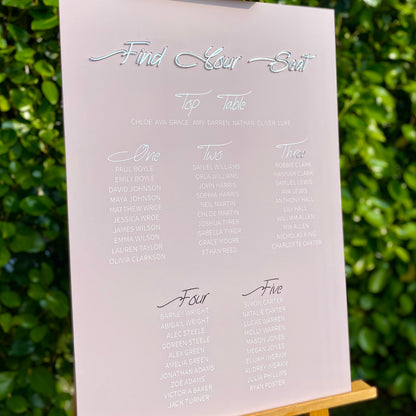 Find Your Seat
Top Table
CHLOE AVA GRACE AMY DARREN NATHAN OLIVER LUKE
One
PAUL BOYLE
EMILY BOYLE
DAVID JOHNSON
MAYA JOHNSON
MATTHEW WROE
JESSICA WROE
JAMES WILSON
EMMA WILSON
LAUREN TAYLOR
OLIVIA CLARKSON
Two
DANIEL WILLIAMS
ORLA WILLIAMS
JOHN HARRIS
SOPHIA HARRIS
NEIL MARTIN
CHLOE MARTIN
JOSHUA TYRER
ISABELLA TYRER
GRACE MOORE
ETHAN REED
Three
ROBBIE CLARK
HANNAH CLARK
SAMUEL LEWIS
AVA LEWIS
ANTHONY HALL
LILY HALL
WILLIAM ALLEN
MIA ALLEN
NICHOLAS KING
CHARLOTTE CARTER
Four
BARNEY WRIGHT
ABIGAIL WRIGHT
ALEC STEELE
DOREEN STEELE
ALEX GREEN
AMELIA GREEN
JONATHAN ADAMS
ZOE ADAMS
VICTORIA BAKER
JACK TURNER
Five
SIMON CARTER
NATALIE CARTER
LUCAS WARREN
HOLLY WARREN
MASON JONES
MEGAN JONES
ELIJAH INGRAM
AUDREY INGRAM
JULIA PHILLIPS
RYAN FOSTER